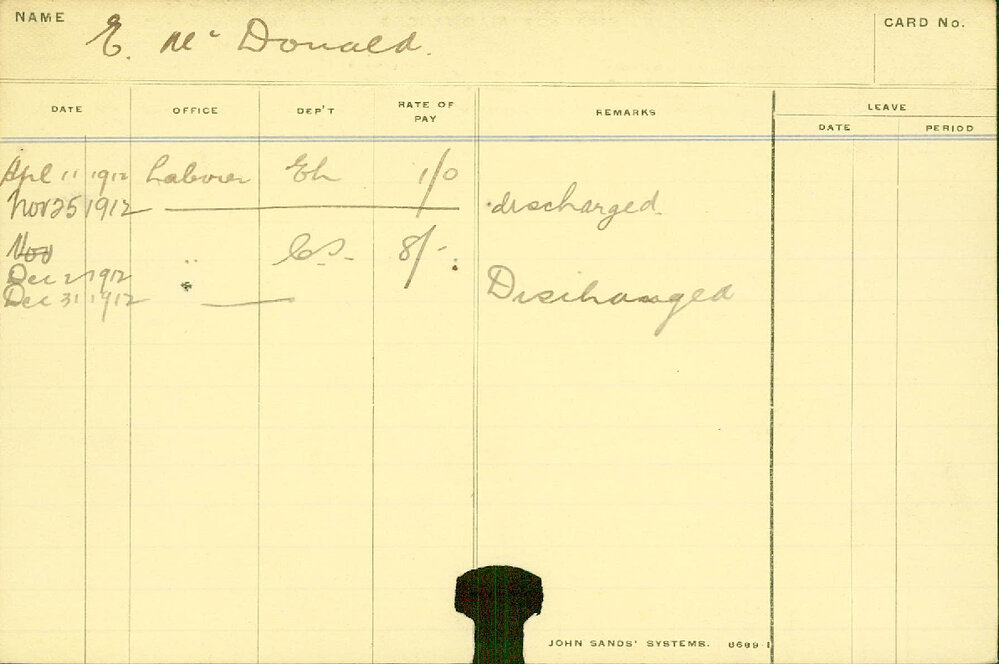 NAME
E. Mc Donald.
CARD No.
DATE OFFICE DEP'T RATE OF PAY REMARKS LEAVE
DATE PERIOD
Apl 11 1912 Labourer Eh 1/0
Nov 25 1912 discharged
Nov
Dec 2 1912 " C.S. 8/-
Dec 31 1912 Discharged
JOHN SANDS' SYSTEMS.